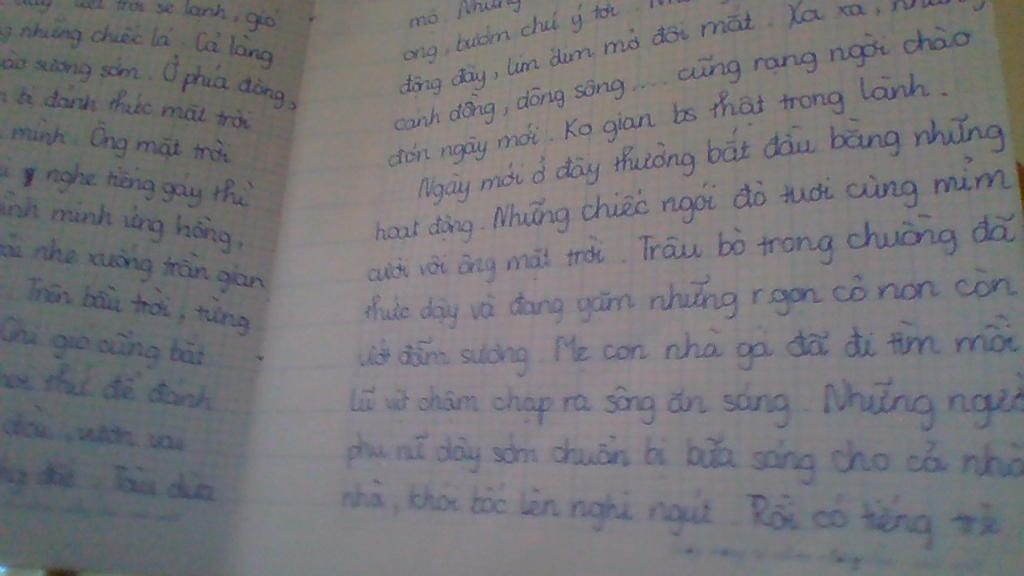 trời se lạnh, gió
những chiếc lá. Cả làng
sương sớm. Ở phía đông,
bị đánh thức mặt trời
mình. Ông mặt trời
nghe tiếng gáy thì
minh ửng hồng,
nhẹ xuống trần gian
Trên bầu trời, từng
gió cũng bắt
thú để đánh
vươn vai
dừa
mỏ. Những
ong, bướm chú ý tới.
động đậy, lim dim mở đôi mắt. Xa xa,
cánh đồng, dòng sông.... cũng rạng ngời chào
đón ngày mới. Ko gian bs thật trong lành.
Ngày mới ở đây thường bắt đầu bằng những
hoạt động. Những chiếc ngói đỏ tươi cùng mỉm
cười với ông mặt trời. Trâu bò trong chuồng đã
thức dậy và đang gặm những rgọn cỏ non còn
ướt đẫm sương. Mẹ con nhà gà đã đi tìm mồi
Lũ vịt chậm chạp ra sông ăn sáng. Những người
phụ nữ dậy sớm chuẩn bị bữa sáng cho cả nhà
nhà, khói bốc lên nghi ngút. Rồi có tiếng